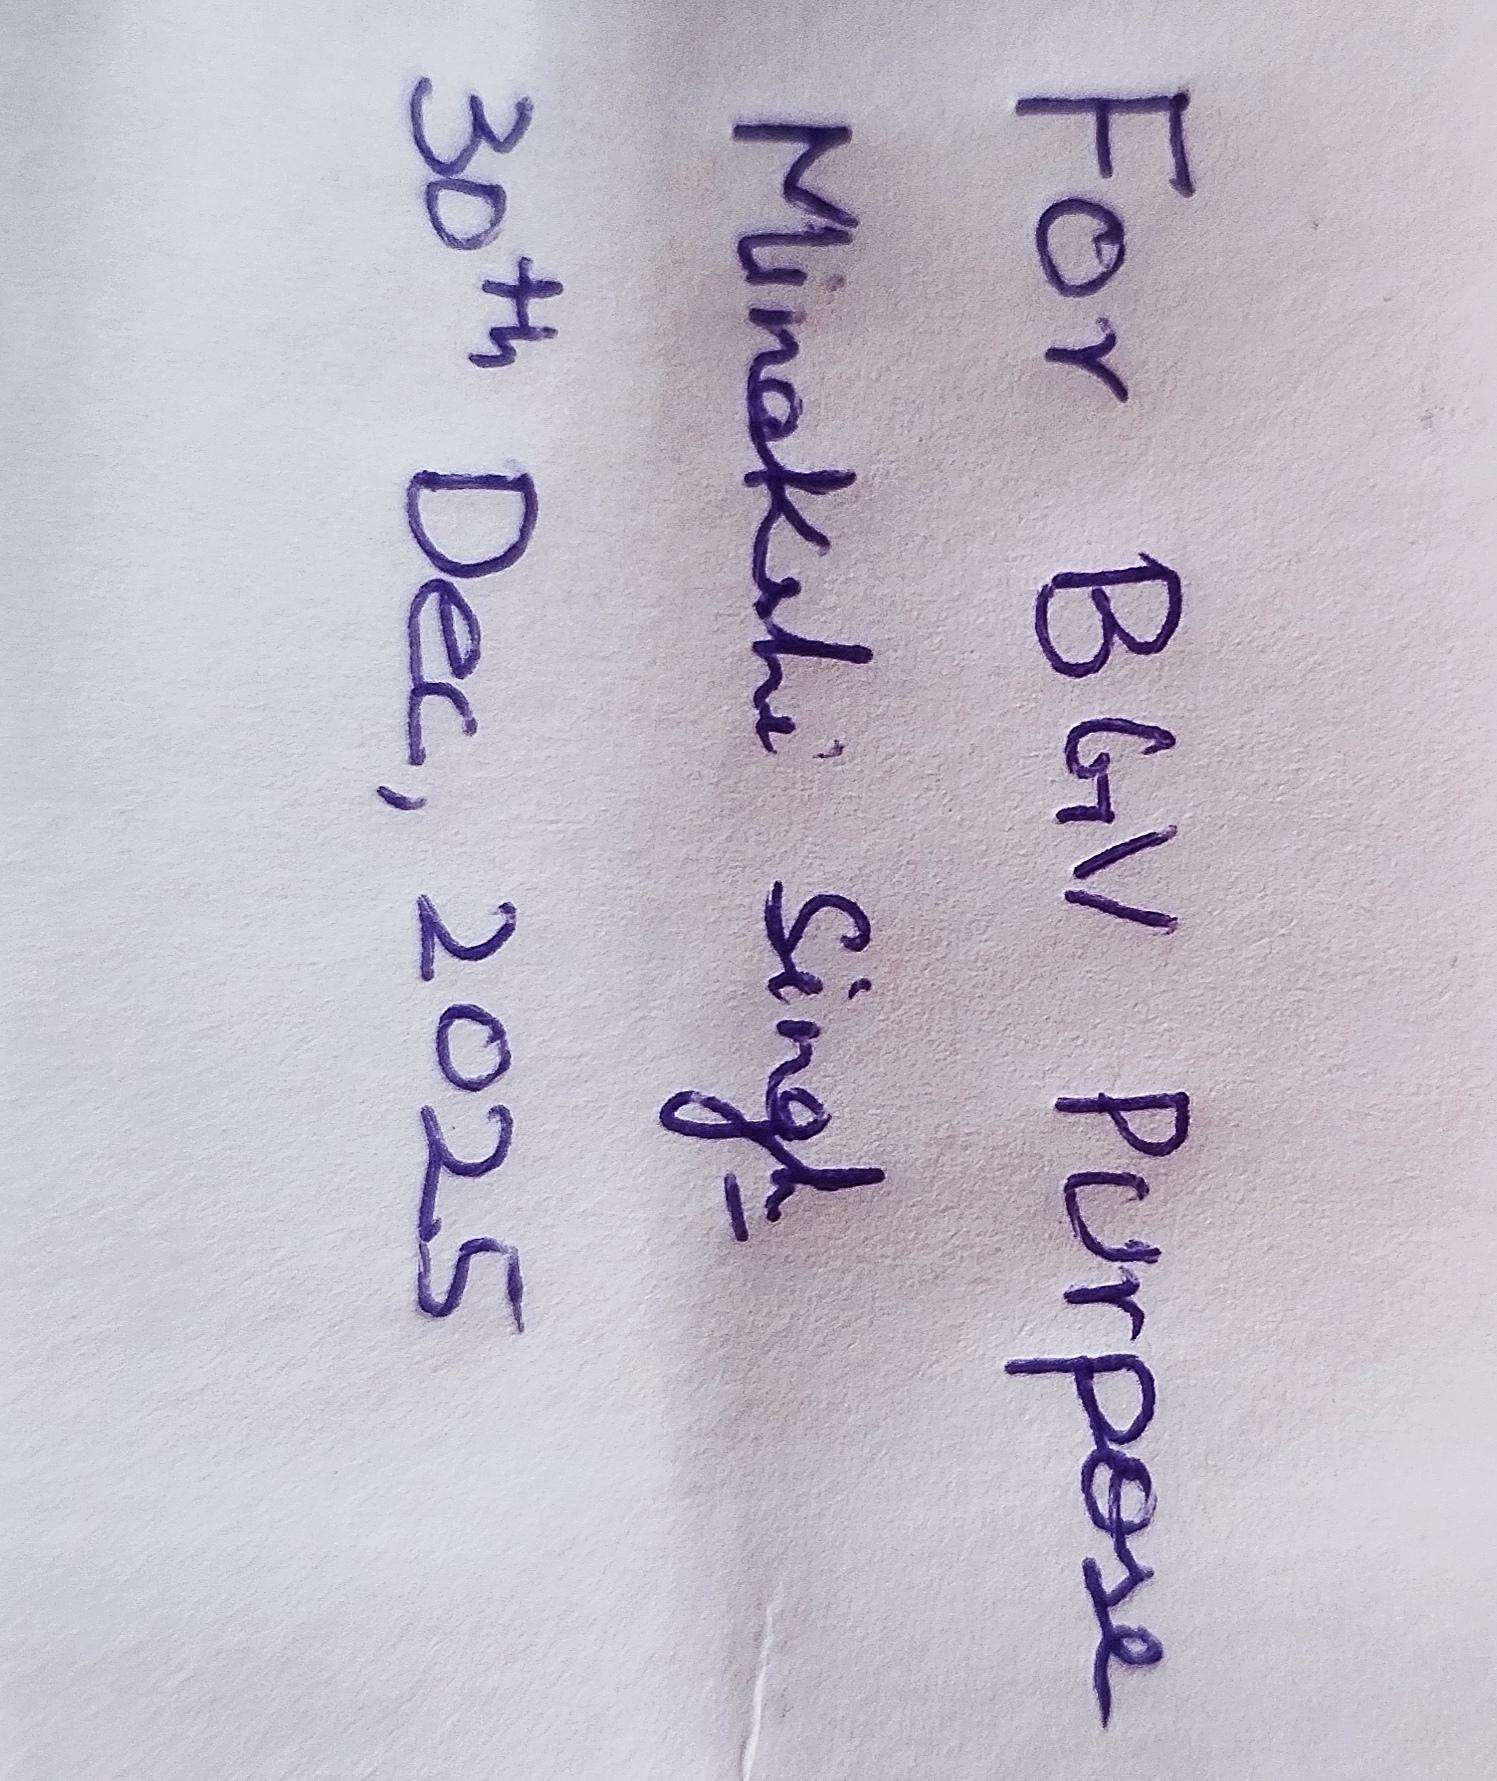 For BGV Purpose
Minakshi Singh
30th Dec, 2025